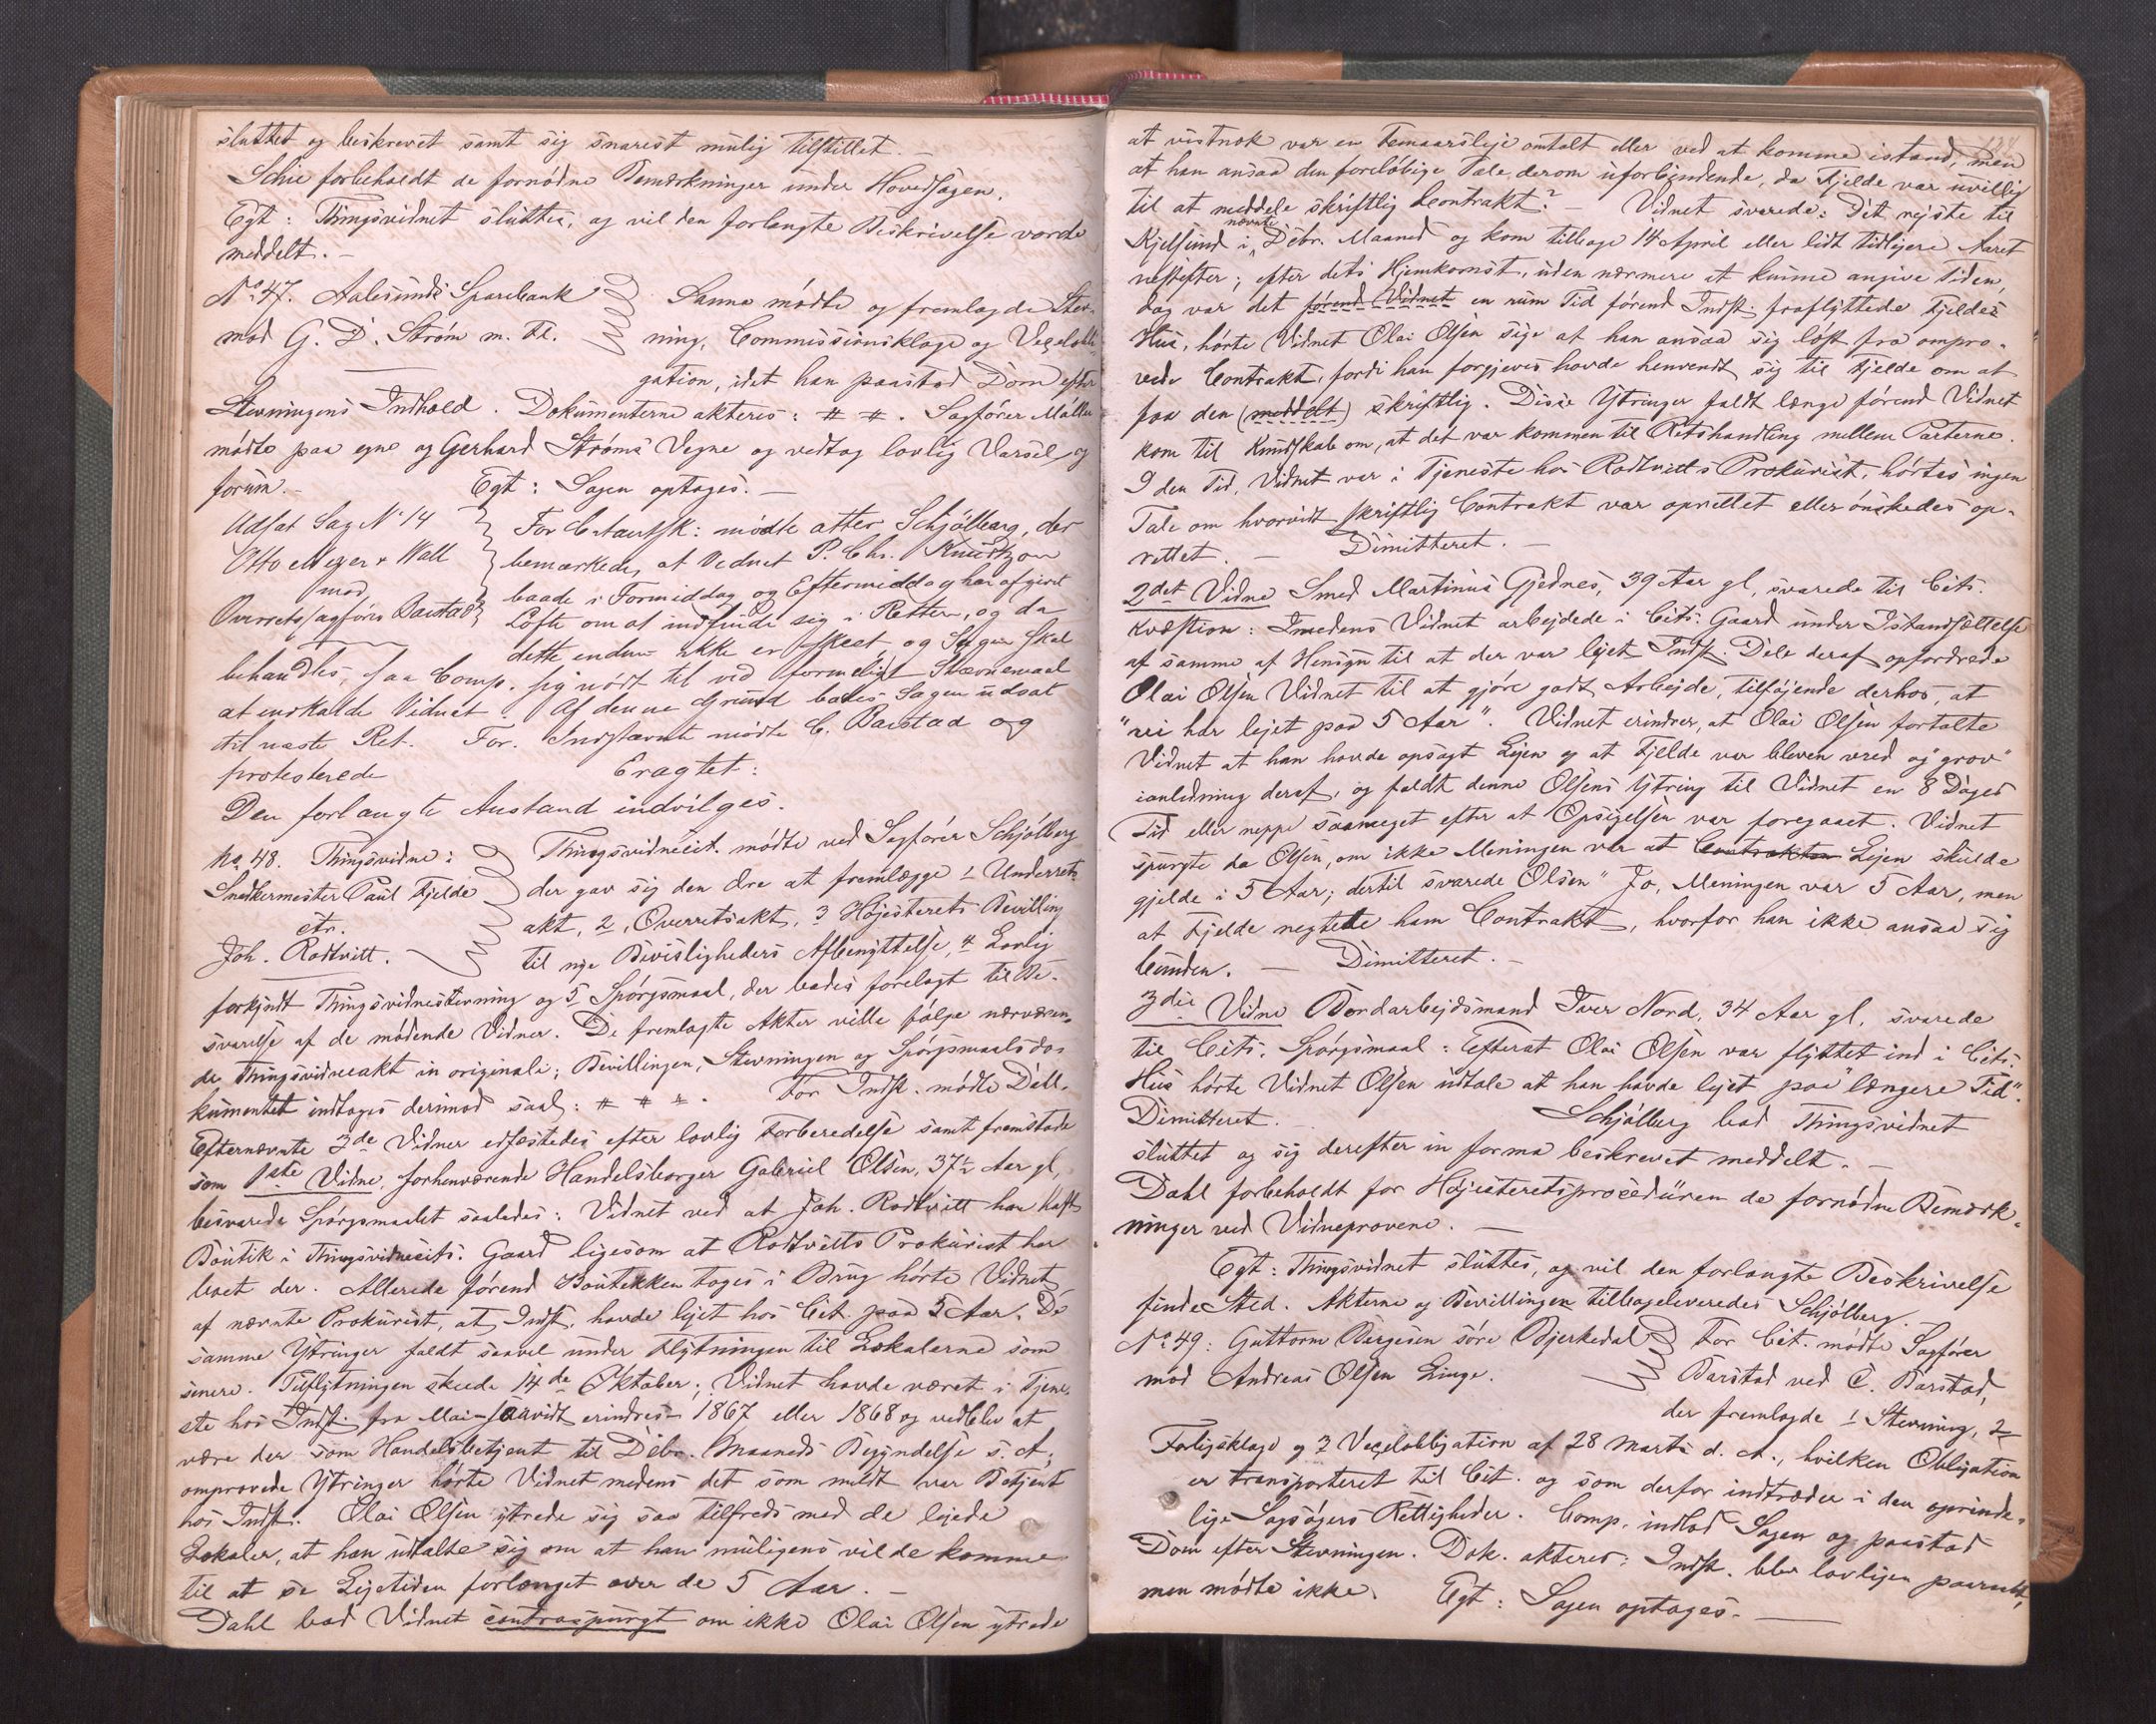 sluttet og beskrevet samt sig snarest mulig tilstillet. —
Schie forbeholdt de fornödne Bemærkninger under Hovedsagen.
Egt: Thingsvidnet sluttes, og vil den forlangte Beskrivelse vorde
meddelt. —
No 47. Aalesunds Sparebank
mod G. D. Ström m. Fl.
Sanne mödte og fremlagde Stev-
ning, Commissionsklage og Vexelobli-
gation, idet han paastod Dom efter
Stevningens Indhold. Dokumenterne akteres: # #. Sagförer Möller
mödte paa egne og Gerhard Ströms Vegne og vedtog lovlig Varsel og
forum. — Egt: Sagen optages. —
Udsat Sag No 14
Otto Meyer & Wall
mod
Overretssagförer Barstad
For Citantsk: mödte atter Schjölberg, der
bemærkede, at Vidnet P. Chr. Knudtzon
baade i Formiddag og Eftermiddag har afgivet
Löfte om at indfinde sig i Retten, og da
dette endnu ikke er skeet, og Sagen skal
behandles, saa Comp. sig nödt til ved formeligt Stævnemaal
at indkalde Vidnet. Af denne Grund bades Sagen udsat
til næste Ret. For Indstævnte mödte C. Barstad og
protesterede Eragtet:
Den forlangte Anstand indvilges.
No. 48. Thingsvidne:
Snedkermester Paul Fjelde
ctr.
Joh. Rodtvitt.
Thingsvidnecit. mödte ved Sagförer Schjölberg
der gav sig den Ære at fremlægge 1 Underrets-
akt, 2, Overretsakt, 3 Höjesterets Bevilling
til nye Bevisligheders Afbenyttelse, 4 Lovlig
forkyndt Thingsvidnestevning og 5 Spörgsmaal, der bades forelagt til Be-
svarelse af de mödende Vidner. De fremlagte Akter ville fölge nærværen-
de Thingsvidneakt in originali; Bevillingen, Stevningen og Spörgsmaalsdo-
kumentet indtages derimod saal: # # #. For Indst. mödte Dahl.
Efternævnte 3de Vidner edfæstedes efter lovlig Forberedelse samt fremstode
som 1ste Vidne, forhenværende Handelsborger Gabriel Olsen, 37½ Aar gl,
besvarede Spörgsmaalet saaledes: Vidnet ved at Joh. Rodtvitt har havt
Boutik i Thingsvidnecits. Gaard ligesom at Rodtvitts Prokurist har
boet der. Allerede förend Boutikken toges i Brug hörte Vidnet
af nævnte Prokurist, at Indst. havde lejet hos Cit. paa 5 Aar. De
samme Ytringer faldt saavel under Flytningen til Lokalerne som
senere. Tilflytningen skede 14de Oktober; Vidnet havde været i Tjene-
ste hos Indst. fra Mai — saavidt erindres — 1867 eller 1868 og vedblev at
være der som Handelsbetjent til Debr. Maaneds Begyndelse s. A;
omprovede Ytringer hörte Vidnet medens det som meldt var Betjent
hos Indst. Olai Olsen ytrede sig saa tilfreds med de lejede
Lokaler, at han udtalte sig om at han muligens vilde komme
til at se Lejetiden forlænget over de 5 Aar. —
Dahl bad Vidnet contraspurgt om ikke Olai Olsen ytrede
at vistnok var en Femaarsleje omtalt eller ved at komme istand, men
at han ansaa den foreløbige Tale derom uforbindende, da Fjelde var uvillig
til at meddele skriftlig Contrakt? — Vidnet svarede: Det rejste til
Kjelsund i nævnte Debr. Maaned og kom tilbage 14 April eller lidt tidligere Aaret
næstefter; efter dets Hjemkomst, uden nærmere at kunne angive Tiden,
dog var det förend Vidnet en rum Tid förend Indst. fraflyttede Fjeldes
Hus, hörte Vidnet Olai Olsen sige at han ansaa sig löst fra ompro-
vede Contrakt, fordi han forgjeves havde henvendt sig til Fjelde om at
faa den (meddelt) skriftlig. Disse Ytringer faldt længe förend Vidnet
kom til Kundskab om, at det var kommen til Retshandling mellem Parterne.
I den Tid, Vidnet var i Tjeneste hos Rodtvitts Prokurist, hörtes ingen
Tale om hvorvidt skriftlig Contrakt var oprettet eller önskedes op-
rettet. — Dimitteret. —
2det Vidne Smed Martinus Gjednes, 39 Aar gl, svarede til Cits.
Kvæstion: Imedens Vidnet arbejdede i Cits. Gaard under Istandsættelse
af samme af Hensyn til at der var lejet Indst. Dele deraf opfordrede
Olai Olsen Vidnet til at gjöre godt Arbejde, tilföjende derhos, at
"vi har lejet paa 5 Aar". Vidnet erindrer, at Olai Olsen fortalte
Vidnet at han havde opsagt Lejen og at Fjelde var bleven vred og "grov"
ianledning deraf, og faldt denne Olsens Ytring til Vidnet en 8 Dages
Tid eller neppe saameget efter at Opsigelsen var foregaaet. Vidnet
spurgte da Olsen, om ikke Meningen var at Contrakten Lejen skulde
gjelde i 5 Aar; dertil svarede Olsen "Jo, Meningen var 5 Aar, men
at Fjelde negtede ham Contrakt, hvorfor han ikke ansaa sig
bunden. — Dimitteret. —
3die Vidne Bordarbejdsmand Iver Nord, 34 Aar gl. svarede
til Cits. Spörgsmaal: Efterat Olai Olsen var flyttet ind i Cits.
Hus hörte Vidnet Olsen udtale at han havde lejet paa "længere Tid".
Dimitteret. — Schjölberg bad Thingsvidnet
sluttet og sig derefter in forma beskrevet meddelt. —
Dahl forbeholdt for Höjesteretsproceduren de fornödne Bemærk-
ninger ved Vidneprovene. —
Egt: Thingsvidnet sluttes, og vil den forlangte Beskrivelse
finde Sted. Akterne og Bevillingen tilbageleveredes Schjölberg.
No 49: Guttorm Børgesen söre Bjerkedal
mod Andreas Olsen Linge.
For Cit. mödte Sagförer
Barstad ved C. Barstad,
der fremlagde 1 Stevning, 2
Forligsklage og 3 Vexelobligation af 28 Marts d. A., hvilken Obligation
er transporteret til Cit. og som derfor indtræder i den oprinde-
lige Sagsögers Rettigheder. Comp. indlod Sagen og paastod
Dom efter Stevningen. Dok. akteres: Indst. blev lovligen paaraabt,
men mödte ikke. Egt: Sagen optages. —